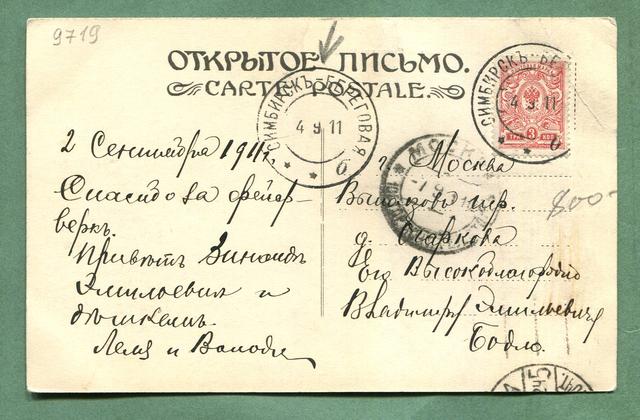 9719
ОТКРЫТОЕ ПИСЬМО.
CARTE POSTALE.
СИМБИРСКЪ-БЕРЕГОВАЯ
4 9 11
б
СИМБИРСКЪ-БЕ
4 9 11
б
3 КОП
2 Сентября 1911 г.
Спасибо за фейер-
веркъ.
Привѣтъ Зинаидѣ
Эмильевнѣ и
дѣткамъ.
Леля и Володя
МОСКВА
г. Москва
пер.
д. Старкова
Его Высокоблагородію
Владиміру Эмильевичу
Бодло.
800-